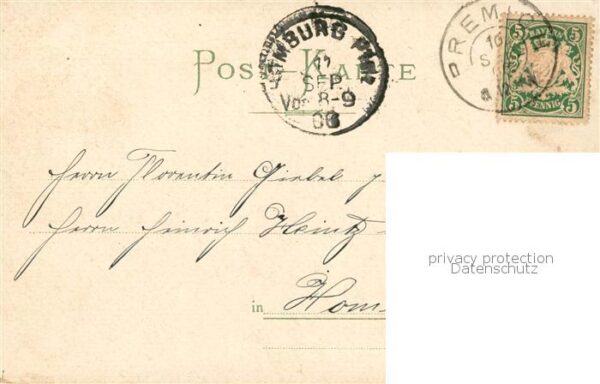 POST-KARTE
HOMBURG Pfalz
11
SEP
Vor 8-9
00
BREM
10
S
5 5
5 PFENNIG 5
Herrn Florentin Giebel p
Herrn Heinrich Heintz
in Hom
privacy protection
Datenschutz